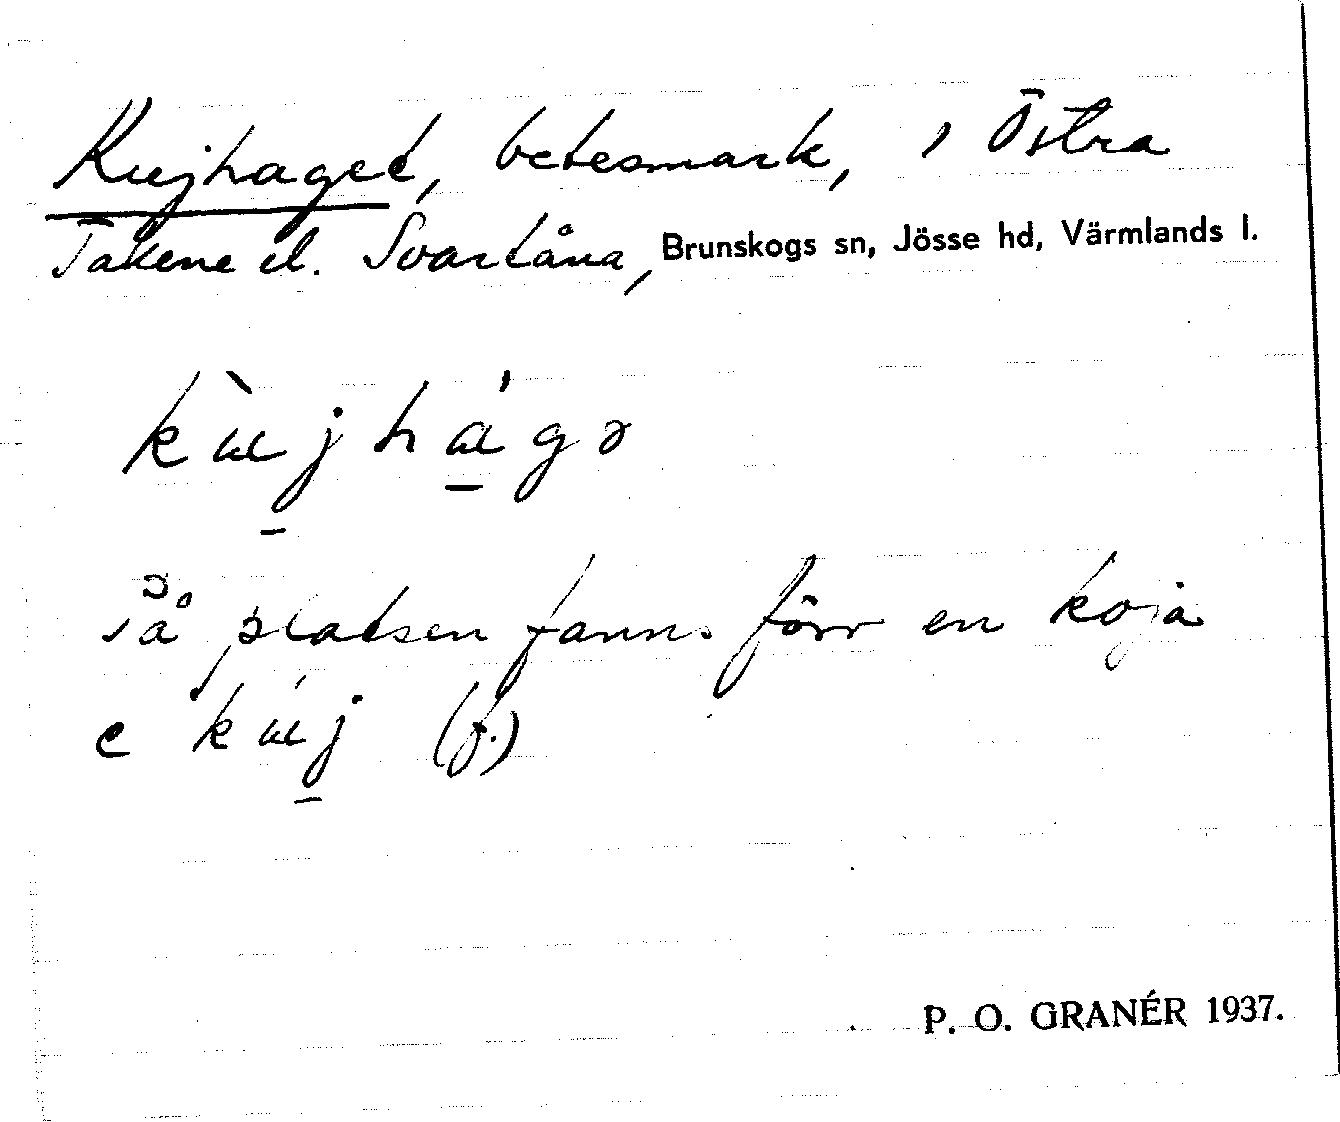 Kujhaget, betesmark, i Östra
Takene el. Svartåna, Brunskogs sn, Jösse hd, Värmlands l.
kùjhágə
På platsen fanns förr en koja
e kúj (f.)
P. O. GRANÉR 1937.